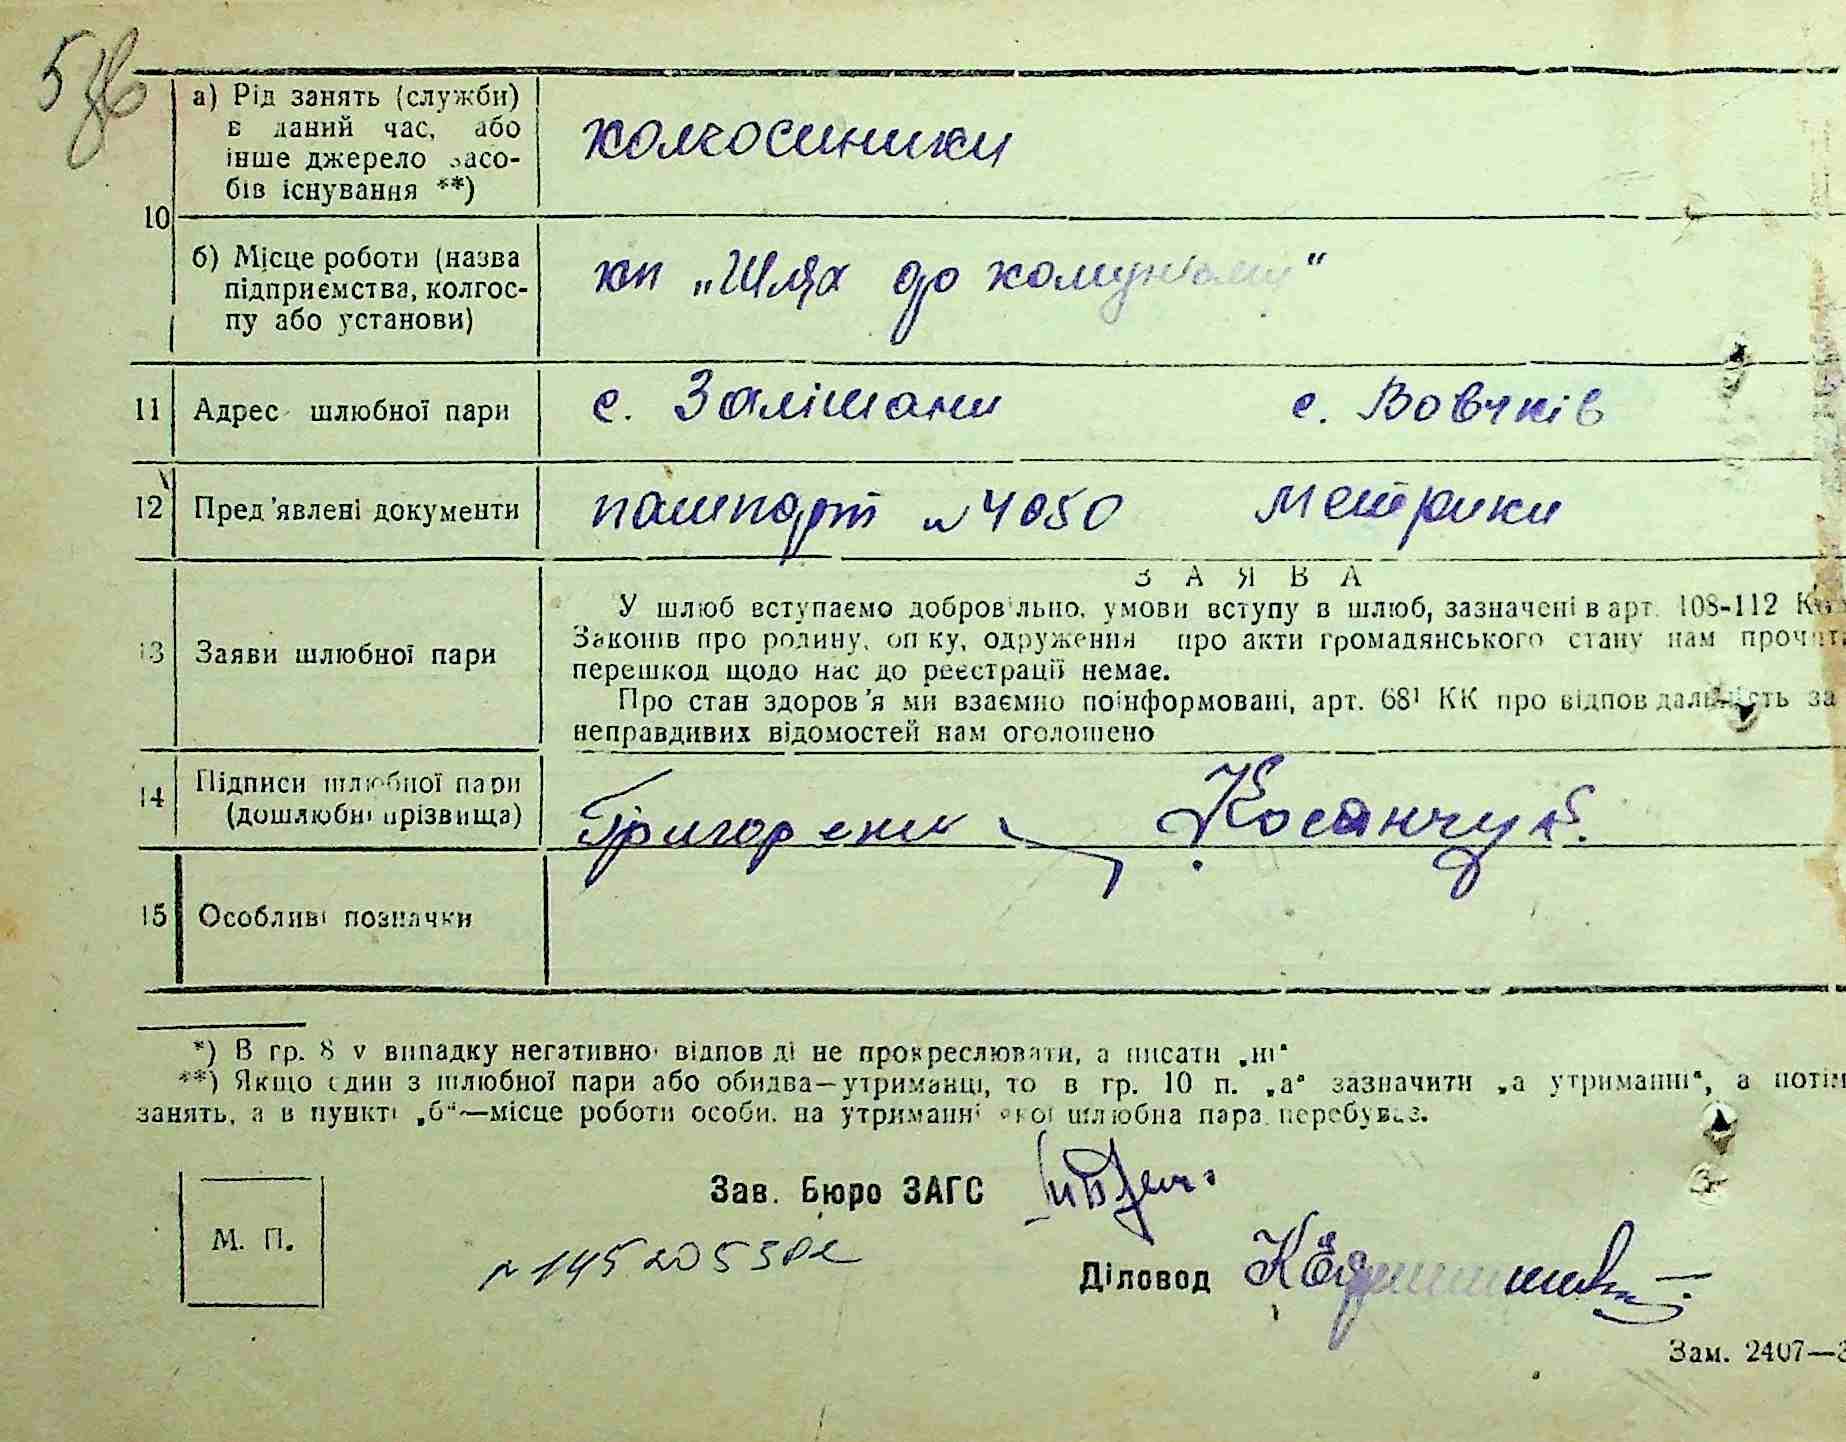 а) Рід занять (служби)
в даний час, або
інше джерело засо-
бів існування **)
колгоспники
10
б) Місце роботи (назва
підприємства, колгос-
пу або установи)
кп „Шлях до комунізму“
11 Адрес шлюбної пари с. Залішани с. Вовчків
12 Пред'явлені документи пашпорт №4050 Метрики
ЗАЯВА
У шлюб вступаємо добровільно, умови вступу в шлюб, зазначені в арт. 108-112
Законів про родину, опіку, одруження про акти громадянського стану нам
перешкод щодо нас до реєстрації немає.
Про стан здоров'я ми взаємно поінформовані, арт. 68¹ КК про відповідальність за
неправдивих відомостей нам оголошено
13 Заяви шлюбної пари
14 Підписи шлюбної пари
(дошлюбні прізвища)
Косянчук
15 Особливі позначки
*) В гр. 8 у випадку негативної відповіді не прокреслювати, а писати „ні“
**) Якщо один з шлюбної пари або обидва—утриманці, то в гр. 10 п. „а“ зазначити „а утриманні“, а потім
занять, а в пункті „б“—місце роботи особи, на утриманні якої шлюбна пара перебуває.
Зав. Бюро ЗАГС
М. П.
Діловод
Зам. 2407—3